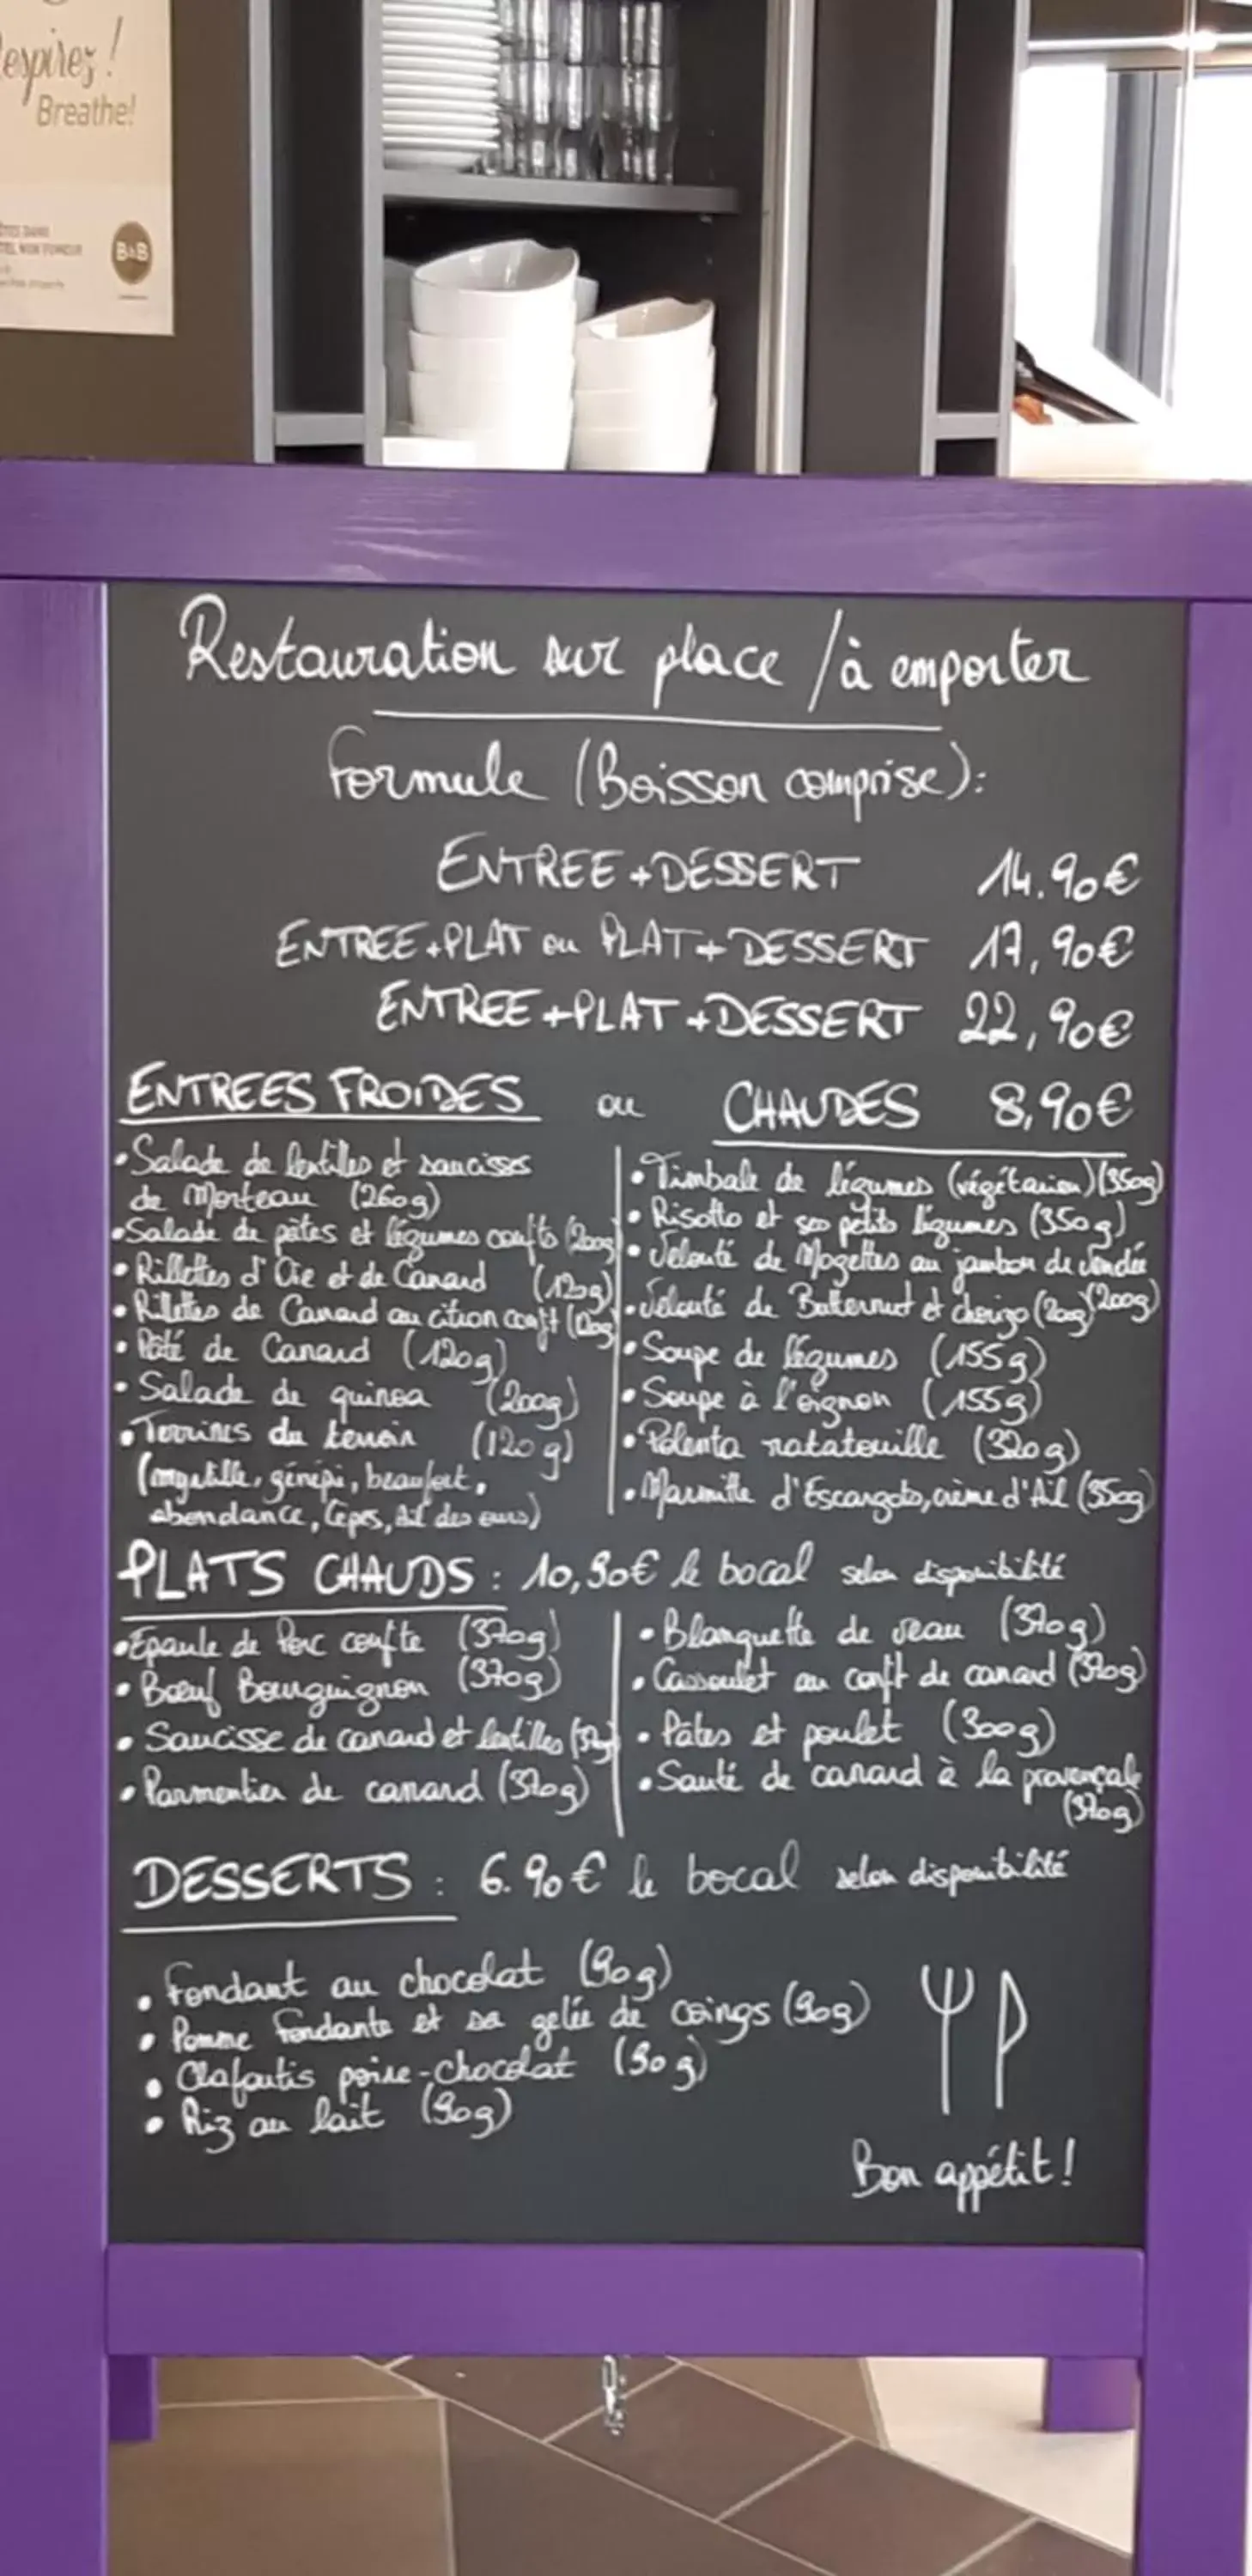 Respirez !
Breathe!
B&B
Restauration sur place / à emporter
Formule (Boisson comprise):
ENTREE+DESSERT 14.90€
ENTREE+PLAT ou PLAT+DESSERT 17,90€
ENTREE+PLAT+DESSERT 22,90€
ENTREES FROIDES ou CHAUDES 8,90€
•Salade de lentilles et saucisses
de Morteau (260g)
•Salade de pâtes et légumes confits (200g)
•Rillettes d'Oie et de Canard (120g)
•Rillettes de Canard au citron confit (120g)
•Pâté de Canard (120g)
•Salade de quinoa (200g)
•Terrines du terroir (120g)
(myrtille, génépi, beaufort,
abondance, Cèpes, Ail des ours)
•Timbale de légumes (végétarien) (350g)
•Risotto et ses petits légumes (350g)
•Velouté de Mogettes au jambon de vendée
(200g)
•Velouté de Butternut et chorizo (200g)
•Soupe de légumes (155g)
•Soupe à l'oignon (155g)
•Polenta ratatouille (320g)
•Marmitte d'Escargots, crème d'Ail (350g)
PLATS CHAUDS : 10,90€ le bocal selon disponibilité
•Epaule de Porc confite (370g)
•Bœuf Bourguignon (370g)
•Saucisse de canard et lentilles
•Parmentier de canard (370g)
•Blanquette de veau (370g)
•Cassoulet au confit de canard (370g)
•Pâtes et poulet (300g)
•Sauté de canard à la provençale
(370g)
DESSERTS : 6.90€ le bocal selon disponibilité
•Fondant au chocolat (90g)
•Pomme fondante et sa gelée de coings (90g)
•Clafoutis poire-chocolat (90g)
•Riz au lait (90g)
Bon appétit!